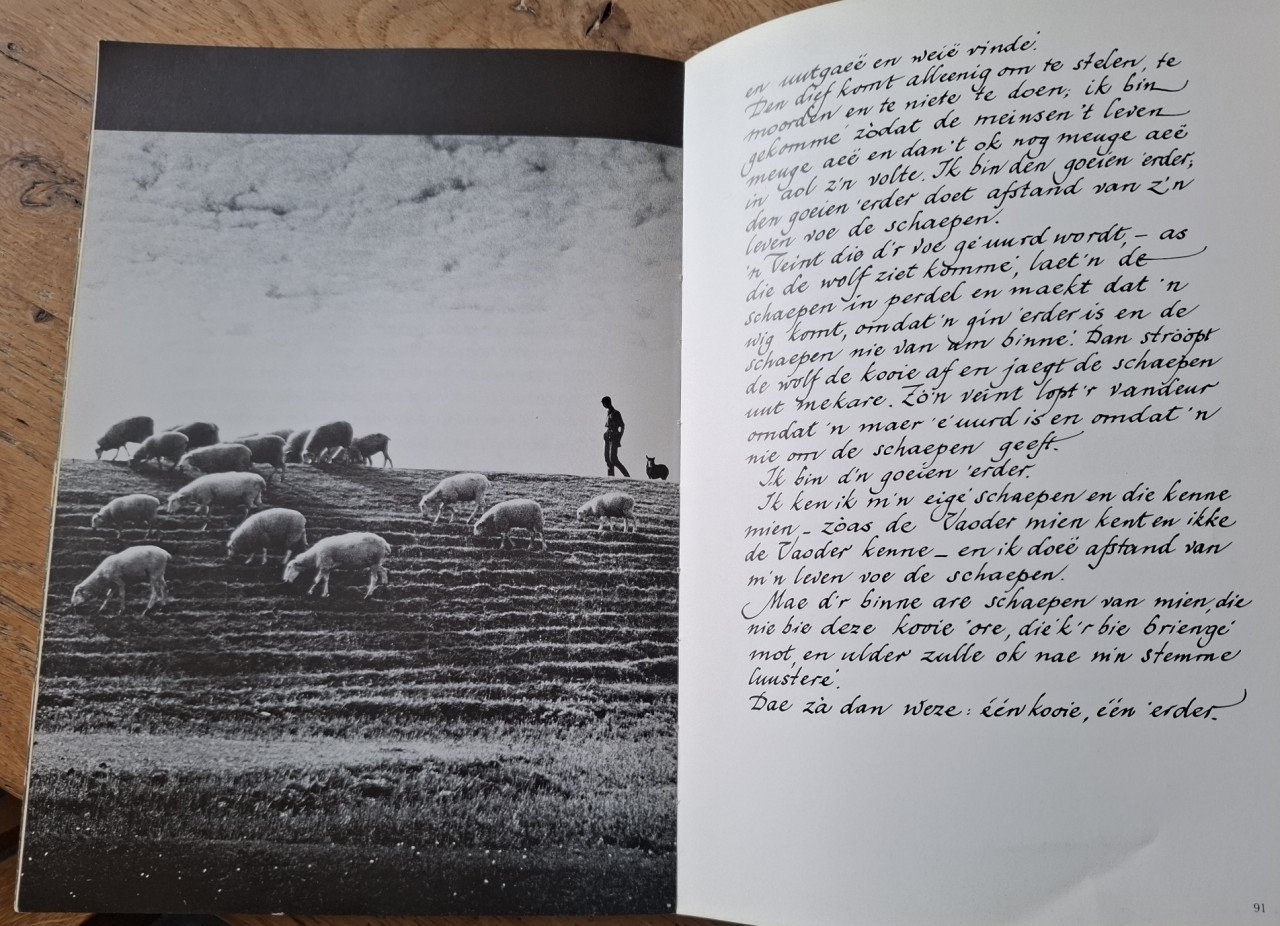 en uutgaeë en weië vinde'.
Den dief komt alleenig om te stelen, te
moorden en te niete te doen; ik bin
gekomme' zòdat de meinsen 't leven
meuge aeë en dan 't ok nog meuge aeë
in aol z'n volte. Ik bin den goeien 'erder;
den goeien 'erder doet afstand van z'n
leven voe de schaepen.
'n Veint die d'r voe ge'uurd wordt, – as
die de wolf ziet komme', laet 'n de
schaepen in perdel en maekt dat 'n
wig komt, omdat 'n gin 'erder is en de
schaepen nie van um binne'. Dan strööpt
de wolf de kooie af en jaegt de schaepen
uut mekare. Zò'n veint lopt 'r vandeur
omdat 'n maer 'e'uurd is en omdat 'n
nie om de schaepen geeft.
Ik bin d'n goeien 'erder.
Ik ken ik m'n eige' schaepen en die kenne
mien – zòas de Vaoder mien kent en ikke
de Vaoder kenne – en ik doeë afstand van
m'n leven voe de schaepen.
Mae d'r binne are schaepen van mien, die
nie bie deze kooie 'ore, die 'k 'r bie brienge'
mot, en ulder zulle ok nae m'n stemme
luustere'.
Dae zà dan weze: één kooie, één 'erder.
91